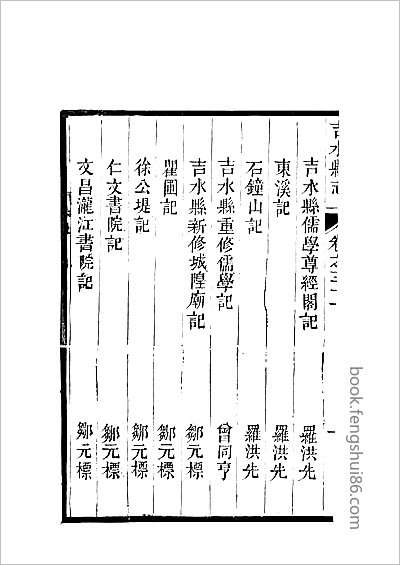 吉水縣志
卷之三
一
吉水縣儒學尊經閣記 羅洪先
東溪記 羅洪先
石鐘山記 羅洪先
吉水縣重修儒學記 曾同亨
吉水縣新修城隍廟記 鄒元標
瞿圃記 鄒元標
徐公堤記 鄒元標
仁文書院記 鄒元標
文昌瀧江書院記 鄒元標
book.fengshui86.com